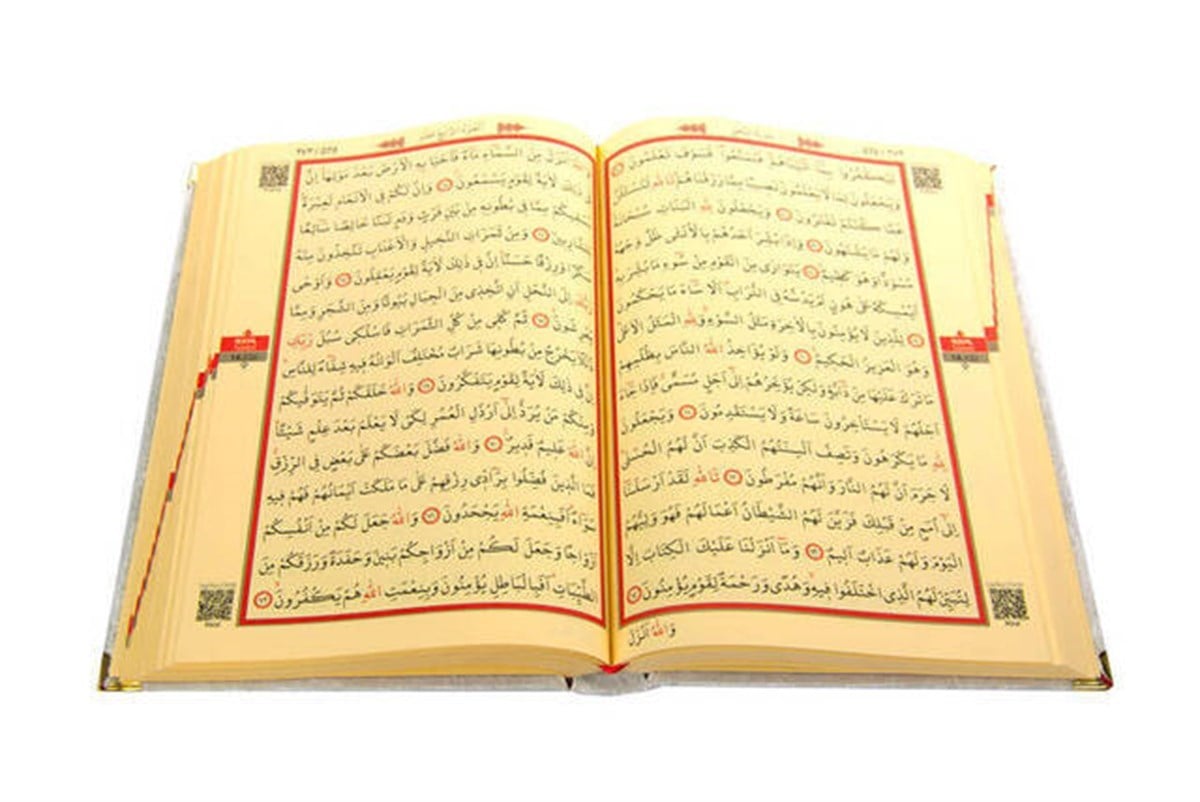 لِيَكْفُرُوا بِمَا اٰتَيْنَاهُمْ فَتَمَتَّعُوا فَسَوْفَ تَعْلَمُونَ
وَيَجْعَلُونَ لِمَا لَا يَعْلَمُونَ نَصِيبًا مِمَّا رَزَقْنَاهُمْ تَاللّٰهِ لَتُسْئَلُنَّ
عَمَّا كُنْتُمْ تَفْتَرُونَ وَيَجْعَلُونَ لِلّٰهِ الْبَنَاتِ سُبْحَانَهُ
وَلَهُمْ مَا يَشْتَهُونَ وَاِذَا بُشِّرَ اَحَدُهُمْ بِالْاُنْثٰى ظَلَّ وَجْهُهُ
مُسْوَدًّا وَهُوَ كَظِيمٌ يَتَوَارٰى مِنَ الْقَوْمِ مِنْ سُوءِ مَا بُشِّرَ بِهِ
اَيُمْسِكُهُ عَلٰى هُونٍ اَمْ يَدُسُّهُ فِي التُّرَابِ اَلَا سَاءَ مَا يَحْكُمُونَ
لِلَّذِينَ لَا يُؤْمِنُونَ بِالْاٰخِرَةِ مَثَلُ السَّوْءِ وَلِلّٰهِ الْمَثَلُ الْاَعْلٰى
وَهُوَ الْعَزِيزُ الْحَكِيمُ وَلَوْ يُؤَاخِذُ اللّٰهُ النَّاسَ بِظُلْمِهِمْ
مَا تَرَكَ عَلَيْهَا مِنْ دَابَّةٍ وَلٰكِنْ يُؤَخِّرُهُمْ اِلٰى اَجَلٍ مُسَمًّى فَاِذَا جَاءَ
اَجَلُهُمْ لَا يَسْتَأْخِرُونَ سَاعَةً وَلَا يَسْتَقْدِمُونَ وَيَجْعَلُونَ
لِلّٰهِ مَا يَكْرَهُونَ وَتَصِفُ اَلْسِنَتُهُمُ الْكَذِبَ اَنَّ لَهُمُ الْحُسْنٰى
لَا جَرَمَ اَنَّ لَهُمُ النَّارَ وَاَنَّهُمْ مُفْرَطُونَ تَاللّٰهِ لَقَدْ اَرْسَلْنَا
اِلٰى اُمَمٍ مِنْ قَبْلِكَ فَزَيَّنَ لَهُمُ الشَّيْطَانُ اَعْمَالَهُمْ فَهُوَ وَلِيُّهُمُ
الْيَوْمَ وَلَهُمْ عَذَابٌ اَلِيمٌ وَمَا اَنْزَلْنَا عَلَيْكَ الْكِتَابَ اِلَّا
لِتُبَيِّنَ لَهُمُ الَّذِي اخْتَلَفُوا فِيهِ وَهُدًى وَرَحْمَةً لِقَوْمٍ يُؤْمِنُونَ
وَاللّٰهُ اَنْزَلَ
اَنْزَلَ مِنَ السَّمَاءِ مَاءً فَاَحْيَا بِهِ الْاَرْضَ بَعْدَ مَوْتِهَا اِنَّ
فِي ذٰلِكَ لَاٰيَةً لِقَوْمٍ يَسْمَعُونَ وَاِنَّ لَكُمْ فِي الْاَنْعَامِ لَعِبْرَةً
نُسْقِيكُمْ مِمَّا فِي بُطُونِهِ مِنْ بَيْنِ فَرْثٍ وَدَمٍ لَبَنًا خَالِصًا سَائِغًا
لِلشَّارِبِينَ وَمِنْ ثَمَرَاتِ النَّخِيلِ وَالْاَعْنَابِ تَتَّخِذُونَ مِنْهُ
سَكَرًا وَرِزْقًا حَسَنًا اِنَّ فِي ذٰلِكَ لَاٰيَةً لِقَوْمٍ يَعْقِلُونَ وَاَوْحٰى
رَبُّكَ اِلَى النَّحْلِ اَنِ اتَّخِذِي مِنَ الْجِبَالِ بُيُوتًا وَمِنَ الشَّجَرِ وَمِمَّا
يَعْرِشُونَ ثُمَّ كُلِي مِنْ كُلِّ الثَّمَرَاتِ فَاسْلُكِي سُبُلَ رَبِّكِ
ذُلُلًا يَخْرُجُ مِنْ بُطُونِهَا شَرَابٌ مُخْتَلِفٌ اَلْوَانُهُ فِيهِ شِفَاءٌ لِلنَّاسِ
اِنَّ فِي ذٰلِكَ لَاٰيَةً لِقَوْمٍ يَتَفَكَّرُونَ وَاللّٰهُ خَلَقَكُمْ ثُمَّ يَتَوَفّٰيكُمْ
وَمِنْكُمْ مَنْ يُرَدُّ اِلٰى اَرْذَلِ الْعُمُرِ لِكَيْ لَا يَعْلَمَ بَعْدَ عِلْمٍ شَيْئًا
اِنَّ اللّٰهَ عَلِيمٌ قَدِيرٌ وَاللّٰهُ فَضَّلَ بَعْضَكُمْ عَلٰى بَعْضٍ فِي الرِّزْقِ
فَمَا الَّذِينَ فُضِّلُوا بِرَادِّي رِزْقِهِمْ عَلٰى مَا مَلَكَتْ اَيْمَانُهُمْ فَهُمْ فِيهِ
سَوَاءٌ اَفَبِنِعْمَةِ اللّٰهِ يَجْحَدُونَ وَاللّٰهُ جَعَلَ لَكُمْ مِنْ اَنْفُسِكُمْ
اَزْوَاجًا وَجَعَلَ لَكُمْ مِنْ اَزْوَاجِكُمْ بَنِينَ وَحَفَدَةً وَرَزَقَكُمْ مِنَ
الطَّيِّبَاتِ اَفَبِالْبَاطِلِ يُؤْمِنُونَ وَبِنِعْمَتِ اللّٰهِ هُمْ يَكْفُرُونَ